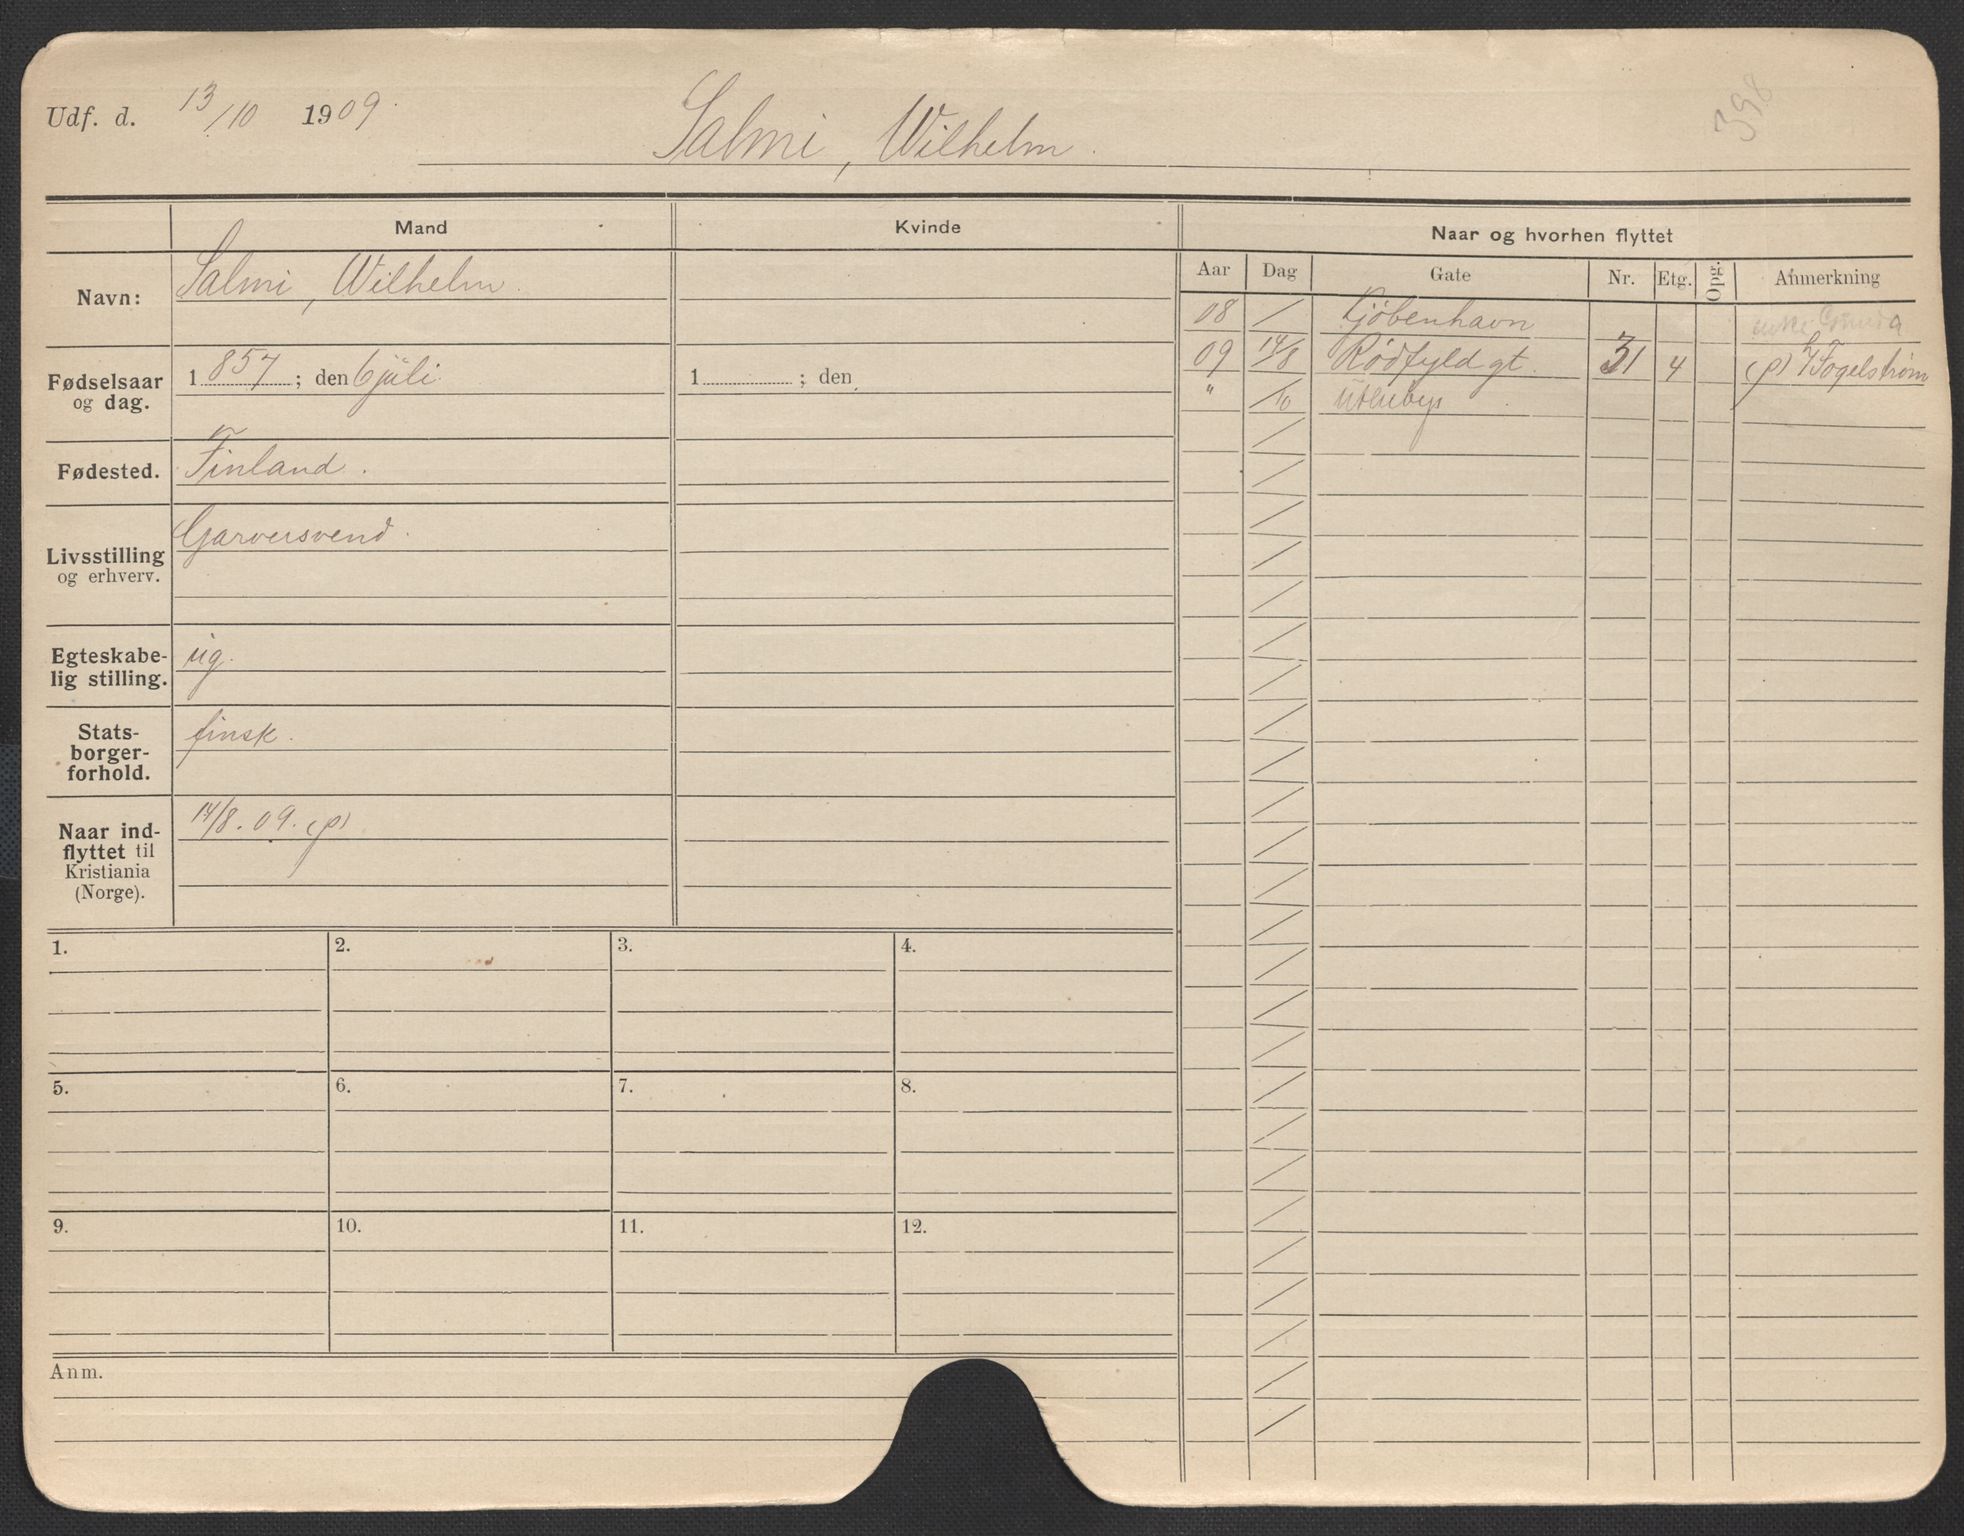 Udf. d. 13/10 1909.
398
Salmi, Wilhelm.
Mand
Kvinde
Naar og hvorhen flyttet
Navn: Salmi, Wilhelm.
Fødselsaar og dag. 1857; den 6 juli
1 ; den
Fødested. Finland.
Livsstilling og erhverv. Garversvend.
Egteskabe-
lig stilling. ug.
Stats-
borger-
forhold. finsk.
Naar ind-
flyttet til
Kristiania
(Norge). 14/8. 09. (p)
Aar Dag Gate Nr. Etg. Opg. Anmerkning
08 / Kjøbenhavn enke Gunda
09 14/8 Rødfyldgt. 31 4 (p) Fogelstrøm
" /10 Utenbys
1. 2. 3. 4.
5. 6. 7. 8.
9. 10. 11. 12.
Anm.